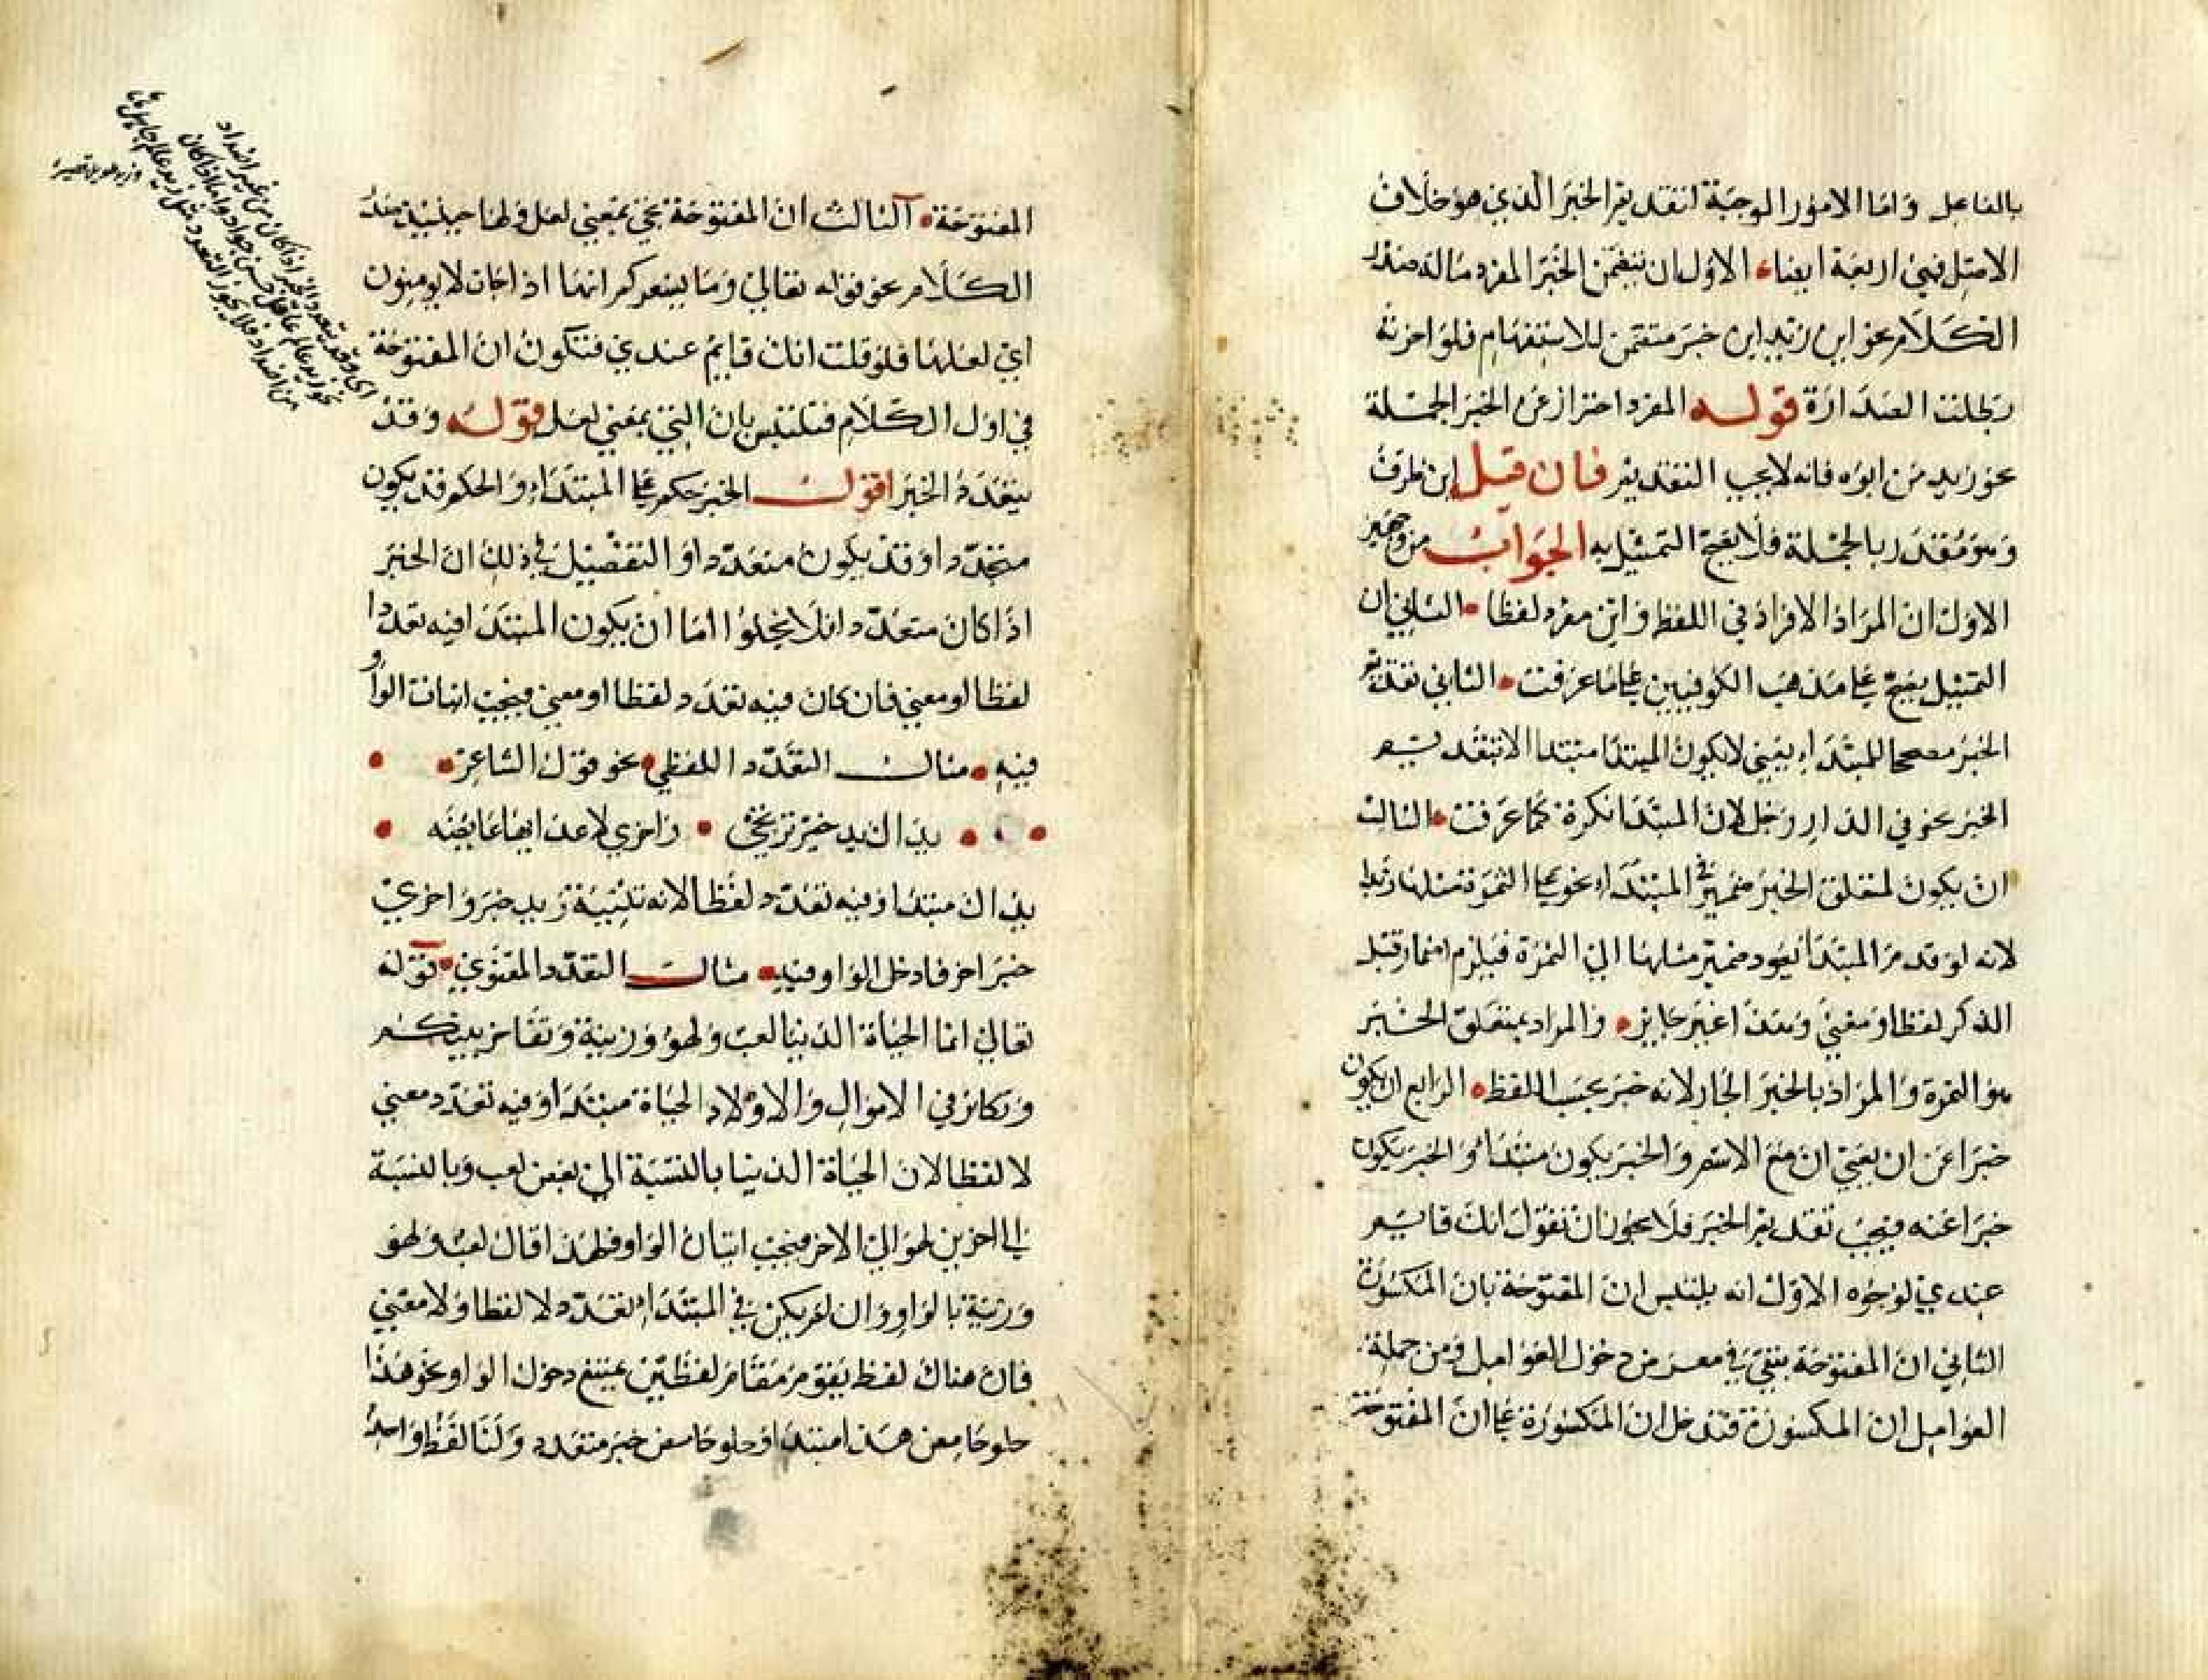 بالفاعل واما الامور الموجبة لتقديم الخبر الذي هو خلاف
الاصل فهي اربعة ايضا الاول ان يتضمن الخبر المفرد ماله صدر
الكلام نحو اين زيد اين خبر متضمن للاستفهام فلو اخرته
بطلت الصدارة قوله المفرد احتراز عن الخبر الجملة
نحو زيد من ابوه فانه لا يجب التقديم فان قيل اين ظرف
وهو مقدر بالجملة فلا يصح التمثيل به الجواب من وجهين
الاول ان المراد الافراد في اللفظ واين مفرد لفظا الثاني ان
التمثيل يصح على مذهب الكوفيين على ما عرفت الثاني تقديم
الخبر مصححا للمبتداء يعني لا يكون المبتدا مبتدا الا بتقديم
الخبر نحو في الدار رجل لان المبتدا نكرة كما عرفت الثالث
ان يكون لمتعلق الخبر ضمير في المبتداء نحو على التمرة مثلها زبدا
لانه لو قدم المبتدا يعود ضمير مثلها الى التمرة فيلزم اضمار قبل
الذكر لفظا ومعنى وهذا غير جايز والمراد بمتعلق الخبر
هو التمرة والمراد بالخبر الجار لانه خبر بحسب اللفظ الرابع ان يكون
خبرا عن ان يعني ان مع الاسم والخبر يكون مبتداء والخبر يكون
خبرا عنه فيجب تقديم الخبر فلا يجوز ان تقول انك قايم
عندي لوجوه الاول انه يلتبس ان المفتوحة بان المكسورة
الثاني ان المفتوحة تبقى في معرض دخول العوامل ومن جملة
العوامل ان المكسورة فتدخل ان المكسورة على ان المفتوحة
المفتوحة الثالث ان المفتوحة تجئ بمعنى لعل ولها حينئذ صدر
الكلام نحو قوله تعالى وما يشعركم انها اذا جات لا يومنون
اي لعلها فلو قلت انك قايم عندي فتكون ان المفتوحة
في اول الكلام فتلتبس بان التي بمعنى لعل قوله وقد
يتعدد الخبر اقول الخبر حكم على المبتداء والحكم قد يكون
متحدا وقد يكون متعددا والتفصيل في ذلك ان الخبر
اذا كان متعددا فلا يخلوا اما ان يكون المبتدا فيه تعددا
لفظا او معنى فان كان فيه تعدد لفظا او معنى فيجب اتيان الواو
فيه مثال التعدد اللفظي نحو قول الشاعر
يداك يد خير ترتجى واخرى لاعدايها غايضه
يداك مبتدا وفيه تعدد لفظا لانه تثنية يد خبر واخرى
خبر اخر فادخل الواو فيه مثال التعدد المعنوي قوله
تعالى انما الحياة الدنيا لعب ولهو وزينة وتفاخر بينكم
وتكاثر في الاموال والاولاد الحياة مبتدا وفيه تعدد معنى
لا لفظا لان الحياة الدنيا بالنسبة الى بعض لعب وبالنسبة
الى اخرين لهو الى الاخر فيجب اتيان الواو فلهذا قال لعب ولهو
وزينة بالواو وان لم يكن في المبتداء تعدد لا لفظا ولا معنى
فان هناك لفظ يقوم مقام لفظين يمتنع دخول الواو نحو هذا
حلو حامض هذا مبتدا وحلو حامض خبر متعدد ولنا لفظ واحد
اي وقد يتعدد الخبر اذا كان من غير اضداد
نحو زيد عالم عاقل حسن جواد واما اذا كان
من اضداد فلا يجوز التعدد مثل زيد عالم جاهل
وزيد طويل قصير